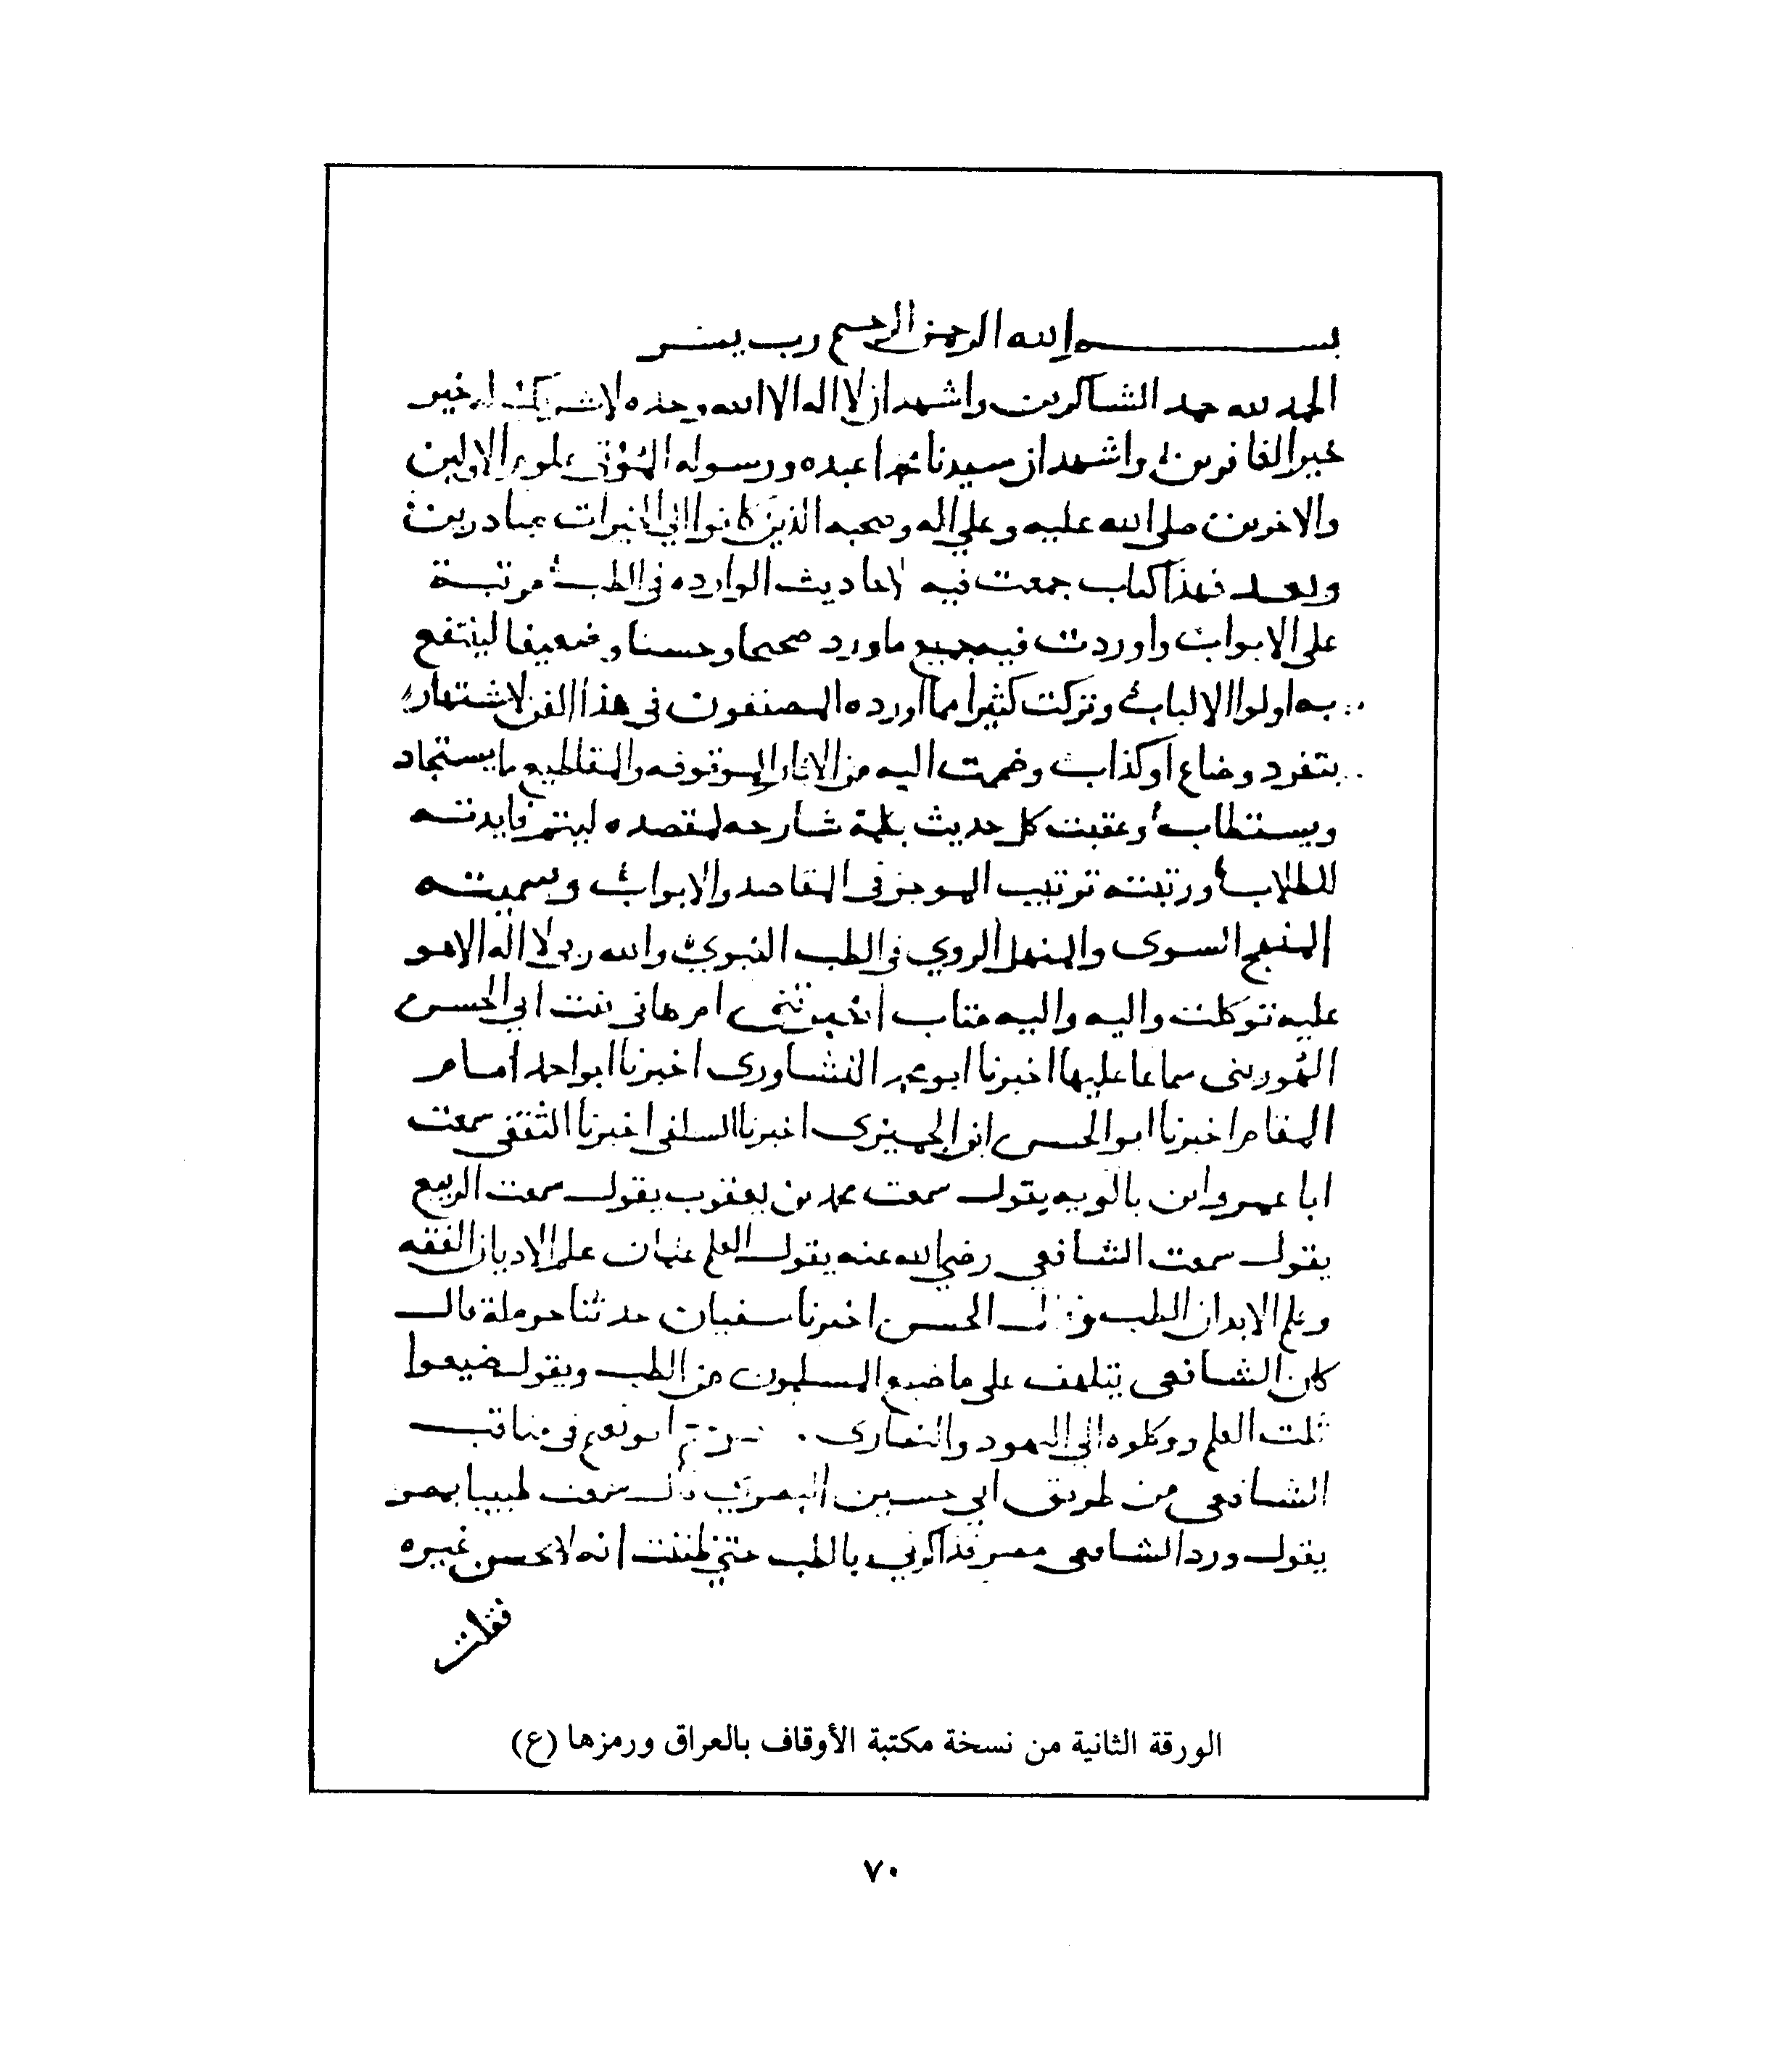 بسم الله الرحمن الرحيم رب يسر
الحمد لله حمد الشاكرين واشهد ان لا اله الا الله وحده لا شريك له خير
خير الغافرين واشهد ان سيدنا محمدا عبده ورسوله المؤتى علوم الاولين
والاخرين صلى الله عليه وعلي اله وصحبه الذين كانوا الي الخيرات مبادرين
وبعد فهذا كتاب جمعت فيه الاحاديث الوارده في الطب مرتبة
على الابواب واوردت فيه جميع ما ورد صحيحا وحسنا وضعيفا لينتفع
به اولوا الالباب وتركت كثيرا مما اورده المصنفون في هذا الفن لاشتهاره
بتفرد وضاع او كذاب وضممت اليه من الاثار الموقوفه والمقاطيع ما يستجاد
ويستطاب وعقبت كل حديث بكلمة شارحه لمقصده ليتم فايدته
للطلاب ورتبته ترتيب الموجز في المقاصد والابواب وسميته
المنهج السوى والمنهل الروي في الطب النبوي والله ربى لا اله الا هو
عليه توكلت واليه واليه متاب اخبرتني ام هانى بنت ابي الحسن
الهورينى سماعا عليها اخبرنا ابو محمد النشاورى اخبرنا ابو احمد امام
المقام اخبرنا ابو الحسن ابن الجميزى اخبرنا السلفى اخبرنا الثقفى سمعت
ابا عمرو ابن بالويه يقول سمعت محمد بن يعقوب يقول سمعت الربيع
يقول سمعت الشافعي رضي الله عنه يقول العلم علمان علم الاديان الفقه
وعلم الابدان الطب وقال الحسن اخبرنا سفيان حدثنا حرملة قال
كان الشافعى يتلهف على ما ضيع المسلمون من الطب ويقول ضيعوا
ثلث العلم ووكلوه الي اليهود والنصارى . ابو نعيم فى مناقب
الشافعى من طريق ابي حسين البصري قال سمعت طبيبا بمصر
يقول ورد الشافعى مصر فذاكرني بالطب حتى ظننت انه لا يحسن غيره
فقلت
الورقة الثانية من نسخة مكتبة الأوقاف بالعراق ورمزها (ع)
٧٠